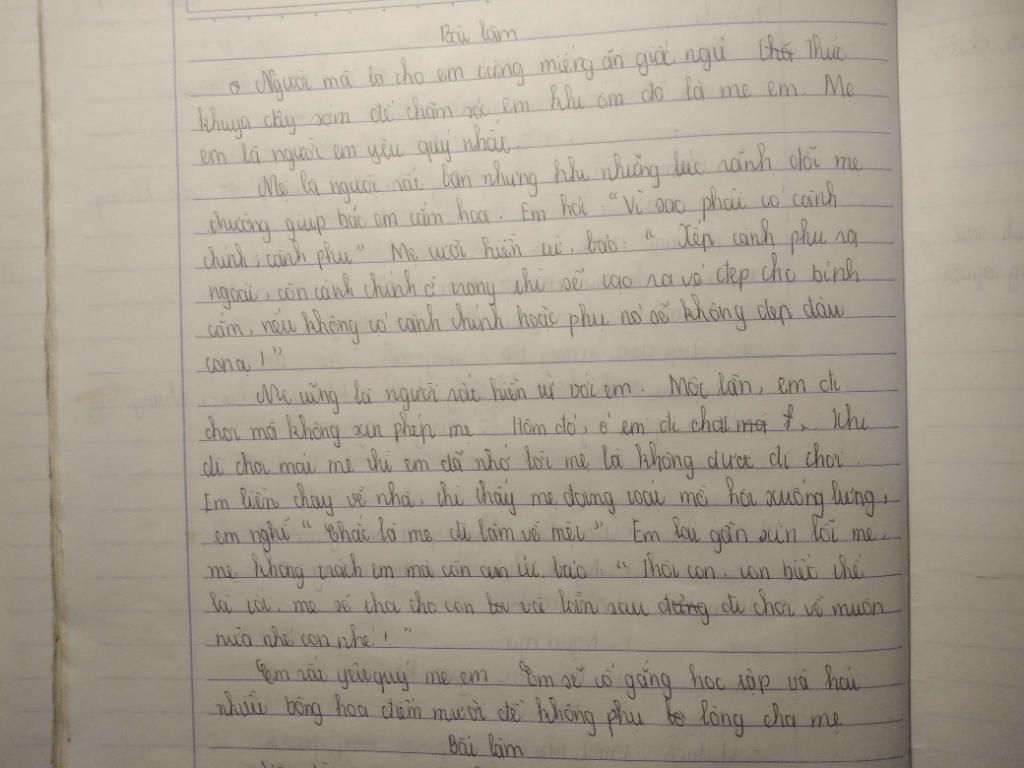 Bài làm
Người mà lo cho em từng miếng ăn giấc ngủ thứ Thức
khuya dậy sớm để chăm sóc em khi ốm đó là mẹ em. Mẹ
em là người em yêu quý nhất.
Mẹ là người rất bận nhưng khi những lúc rảnh dỗi mẹ
thường giúp em cắm hoa. Em hỏi "Vì sao phải có cành
chính, cành phụ" Mẹ cười hiền từ, bảo: "Xếp cành phụ ra
ngoài, còn cành chính ở trong thì sẽ tạo ra vẻ đẹp cho bình
cắm, nếu không có cành chính hoặc phụ nó sẽ không đẹp đâu
con ạ!"
Mẹ cũng là người rất hiền từ với em. Một lần, em đi
chơi mà không xin phép mẹ. Hôm đó, em đi chơi Khi
đi chơi mải mê thì em đã nhớ lời mẹ là không được đi chơi.
Em liền chạy về nhà, thì thấy mẹ đang toát mồ hôi xuống lưng,
em nghĩ "Chắc là mẹ đi làm về mệt" Em lại gần xin lỗi mẹ,
mẹ không trách em mà còn bảo: "Thôi con, con biết thế
là tốt, mẹ sẽ tha cho con và lần sau đừng đi chơi về muộn
nữa nhé con nhé!"
Em rất yêu quý mẹ em. Em sẽ cố gắng học tập và hái
nhiều bông hoa điểm mười để không phụ lòng cha mẹ
Bài làm